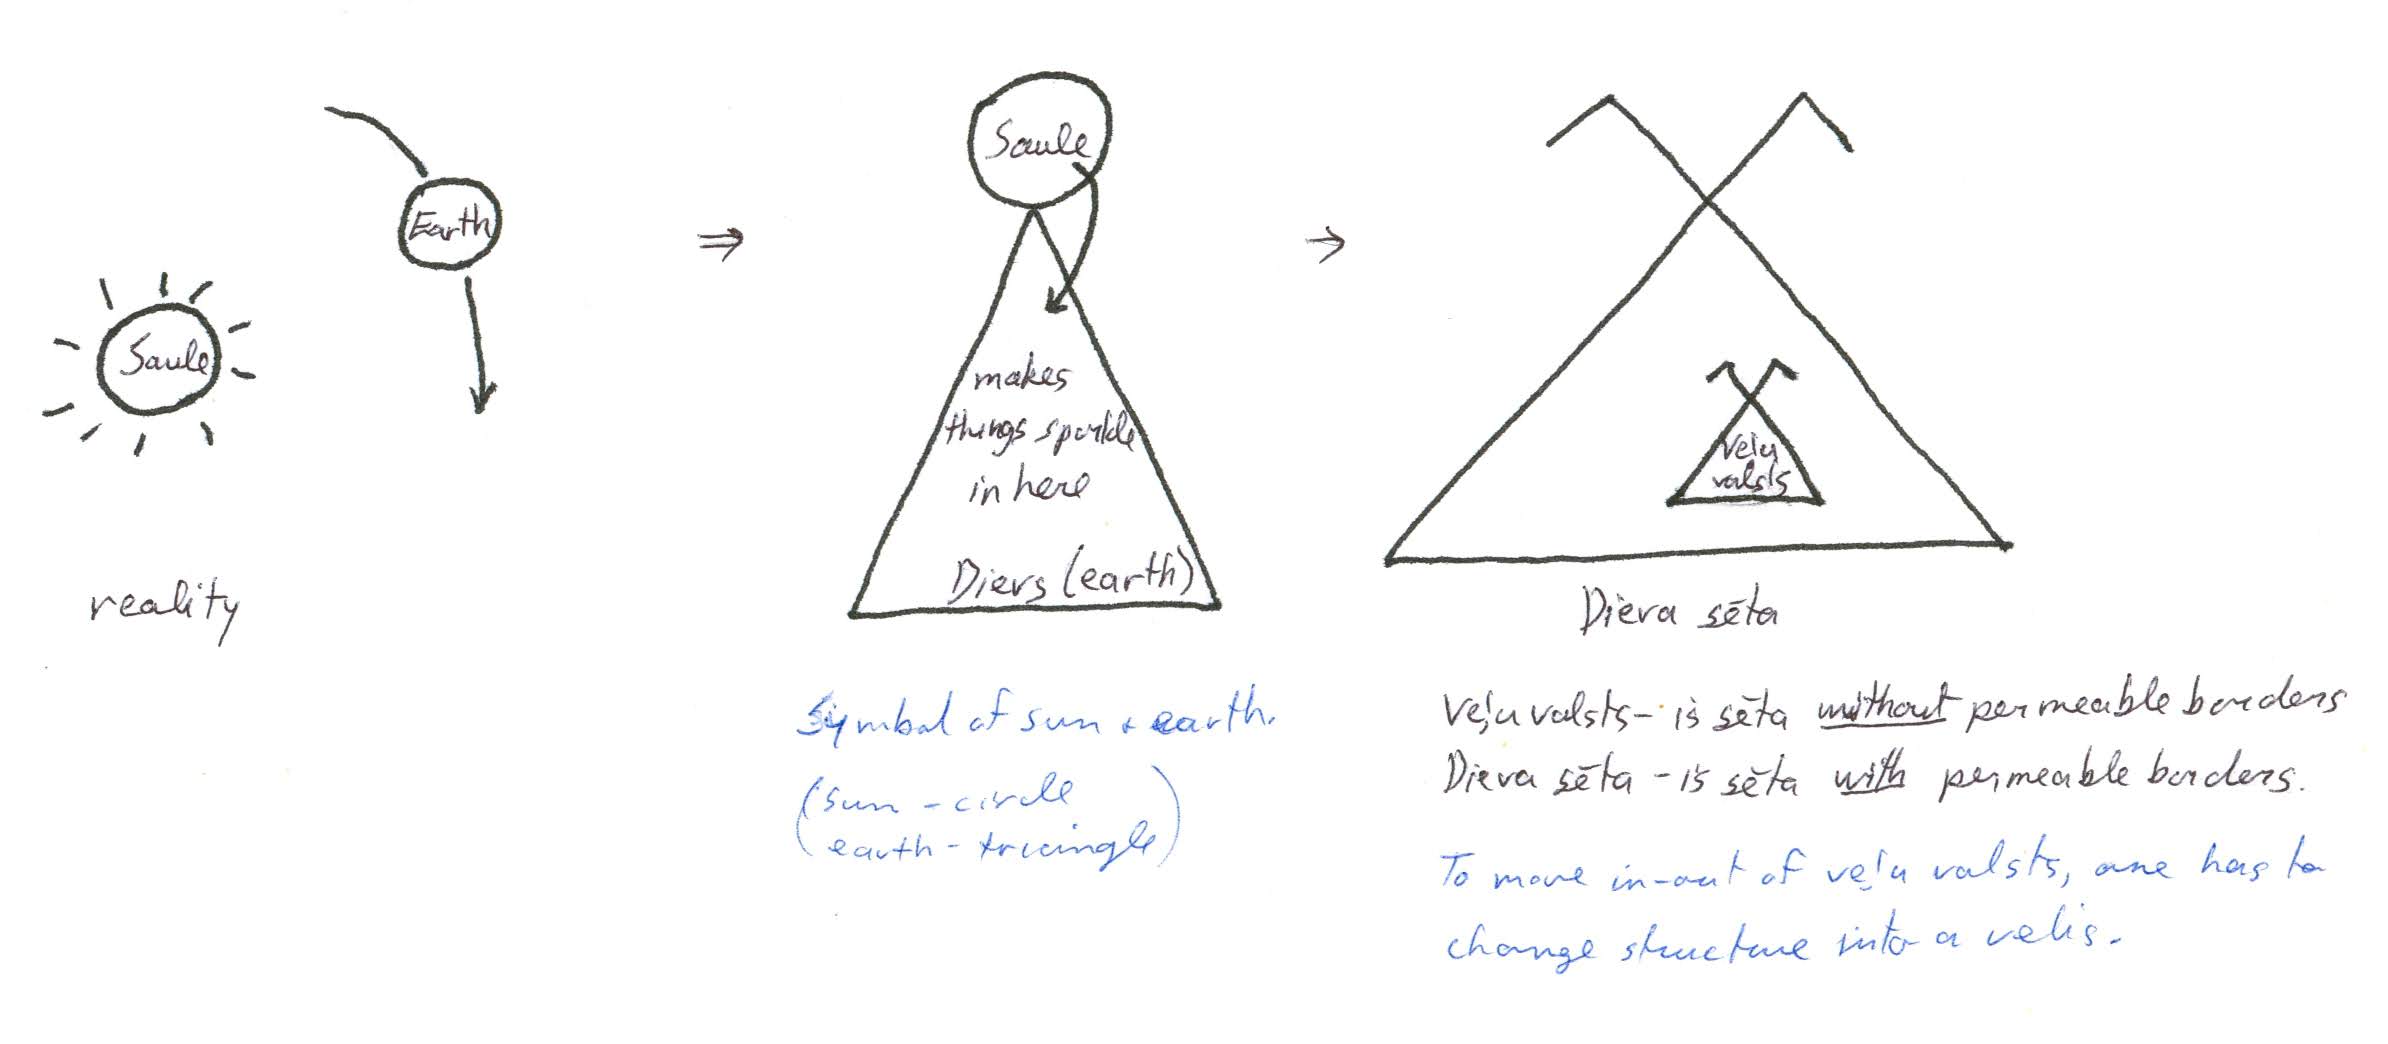 Saule
Earth
reality
⇒
Saule
makes
things sparkle
in here
Dievs (earth)
Symbol of sun + earth.
(sun - circle
earth - triangle)
→
Veļu
valsts
Dieva sēta
Veļu valsts - is sēta without permeable borders
Dieva sēta - is sēta with permeable borders.
To move in-out of veļu valsts, one has to
change structure into a velis.